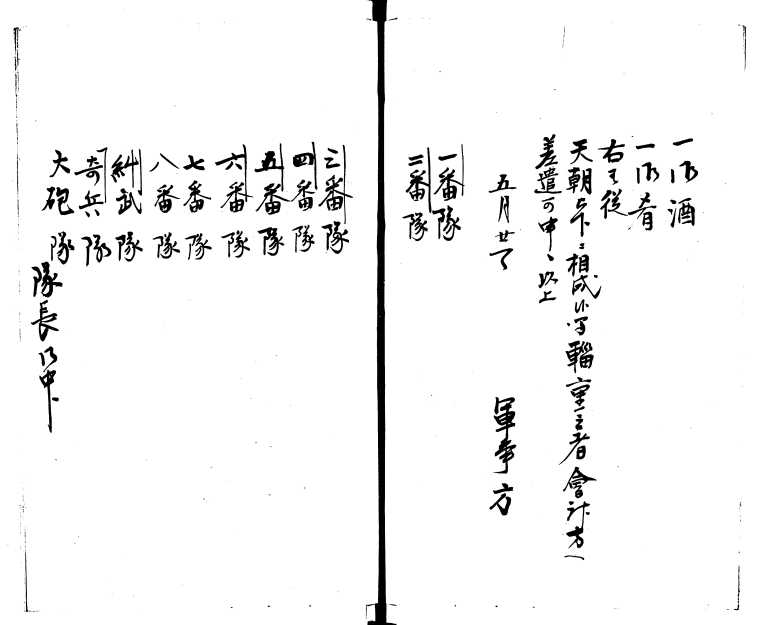 一御酒
一御肴
右者従
天朝被下ニ相成候間輜重之者會計方へ
差遣可申候以上
五月廿
軍事方
一番隊
二番隊
三番隊
四番隊
五番隊
六番隊
七番隊
八番隊
糾武隊
奇兵隊
大砲隊
隊長御中